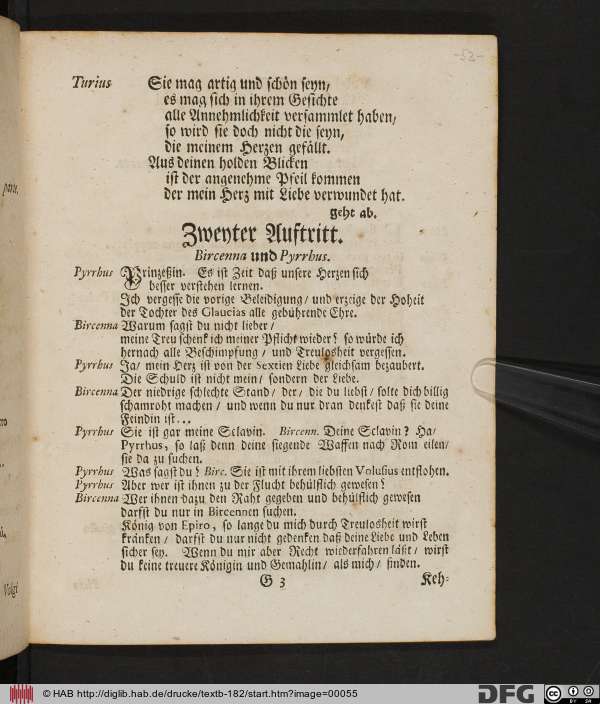 -53-
Turius Sie mag artig und schön seyn/
es mag sich in ihrem Gesichte
alle Annehmlichkeit versammlet haben/
so wird sie doch nicht die seyn,
die meinem Herzen gefällt.
Aus deinen holden Blicken
ist der angenehme Pfeil kommen
der mein Herz mit Liebe verwundet hat.
geht ab.
Zweyter Auftritt.
Bircenna und Pyrrhus.
Pyrrhus Prinzeßin. Es ist Zeit daß unsere Herzen sich
besser verstehen lernen.
Ich vergesse die vorige Beleidigung/ und erzeige der Hoheit
der Tochter des Glaucias alle gebührende Ehre.
Bircenna Warum sagst du nicht lieber/
meine Treu schenk ich meiner Pflicht wieder? so würde ich
hernach alle Beschimpfung/ und Treulosheit vergessen.
Pyrrhus Ja/ mein Herz ist von der Sextien Liebe gleichsam bezaubert.
Die Schuld ist nicht mein/ sondern der Liebe.
Bircenna Der niedrige schlechte Stand/ der/ die du liebst/ solte dich billig
schamroht machen/ und wenn du nur dran denkest daß sie deine
Feindin ist...
Pyrrhus Sie ist gar meine Sclavin. Bircenn. Deine Sclavin? Ha/
Pyrrhus, so laß denn deine siegende Waffen nach Rom eilen/
sie da zu suchen.
Pyrrhus Was sagst du? Birc. Sie ist mit ihrem liebsten Volusius entflohen.
Pyrrhus Aber wer ist ihnen zu der Flucht behülflich gewesen?
Bircenna Wer ihnen dazu den Raht gegeben und behülflich gewesen
darfst du nur in Bircennen suchen.
König von Epiro, so lange du mich durch Treulosheit wirst
kränken/ darfst du nur nicht gedenken daß deine Liebe und Leben
sicher sey. Wenn du mir aber Recht wiederfahren läßt/ wirst
du keine treuere Königin und Gemahlin/ als mich/ finden.
G 3 Keh-
parte.
Volgi
© HAB http://diglib.hab.de/drucke/textb-182/start.htm?image=00055
DFG
cc BY SA